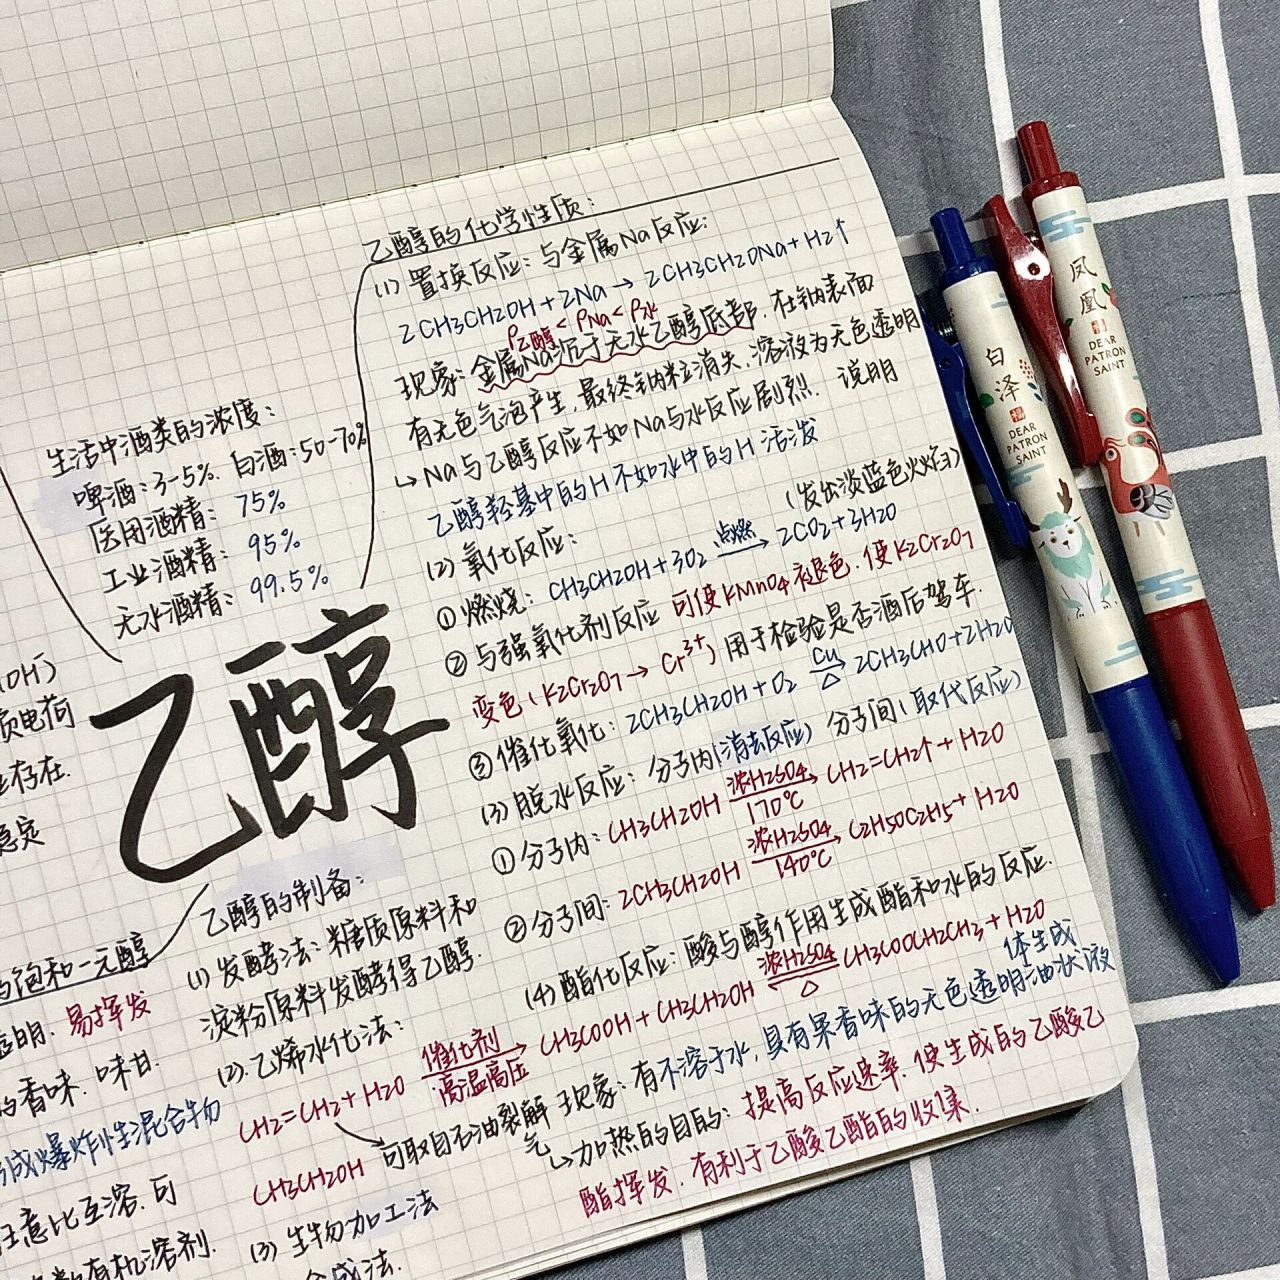 乙醇的化学性质:
(1) 置换反应: 与金属Na反应:
2CH3CH2OH + 2Na → 2CH3CH2ONa + H2↑
ρ乙醇 < ρNa < ρ水
现象: 金属Na沉于无水乙醇底部. 在钠表面
有无色气泡产生, 最终钠粒消失, 溶液为无色透明
↳ Na与乙醇反应不如Na与水反应剧烈. 说明
乙醇羟基中的H不如水中的H活泼
(2) 氧化反应:
(发出淡蓝色火焰)
① 燃烧: CH3CH2OH + 3O2 点燃→ 2CO2 + 3H2O
② 与强氧化剂反应 可使KMnO4褪色. 使K2Cr2O7
变色 (K2Cr2O7 → Cr3+) 用于检验是否酒后驾车.
③ 催化氧化: 2CH3CH2OH + O2 Cu→△ 2CH3CHO + 2H2O
(3) 脱水反应: 分子内(消去反应) 分子间(取代反应)
① 分子内: CH3CH2OH 浓H2SO4→170℃ CH2=CH2↑ + H2O
② 分子间: 2CH3CH2OH 浓H2SO4→140℃ C2H5OC2H5 + H2O
(4) 酯化反应: 酸与醇作用生成酯和水的反应.
CH3COOH + CH3CH2OH 浓H2SO4⇌△ CH3COOCH2CH3 + H2O
现象: 有不溶于水, 具有果香味的无色透明油状液
体生成
↳ 加热的目的: 提高反应速率. 使生成的乙酸乙
酯挥发. 有利于乙酸乙酯的收集.
生活中酒类的浓度:
啤酒: 3-5%. 白酒: 50-70%
医用酒精: 75%
工业酒精: 95%
无水酒精: 99.5%
乙醇
乙醇的制备:
(1) 发酵法: 糖质原料和
淀粉原料发酵得乙醇.
(2). 乙烯水化法:
CH2=CH2 + H2O 催化剂→高温高压
CH3CH2OH
可取自石油裂解
气
(3) 生物加工法
合成法.
OH)
质电荷
存在.
稳定
饱和一元醇
透明. 易挥发
的香味. 味甘.
形成爆炸性混合物
任意比互溶. 可
数有机溶剂.
白泽
福
DEAR
PATRON
SAINT
凤凰
福
DEAR
PATRON
SAINT